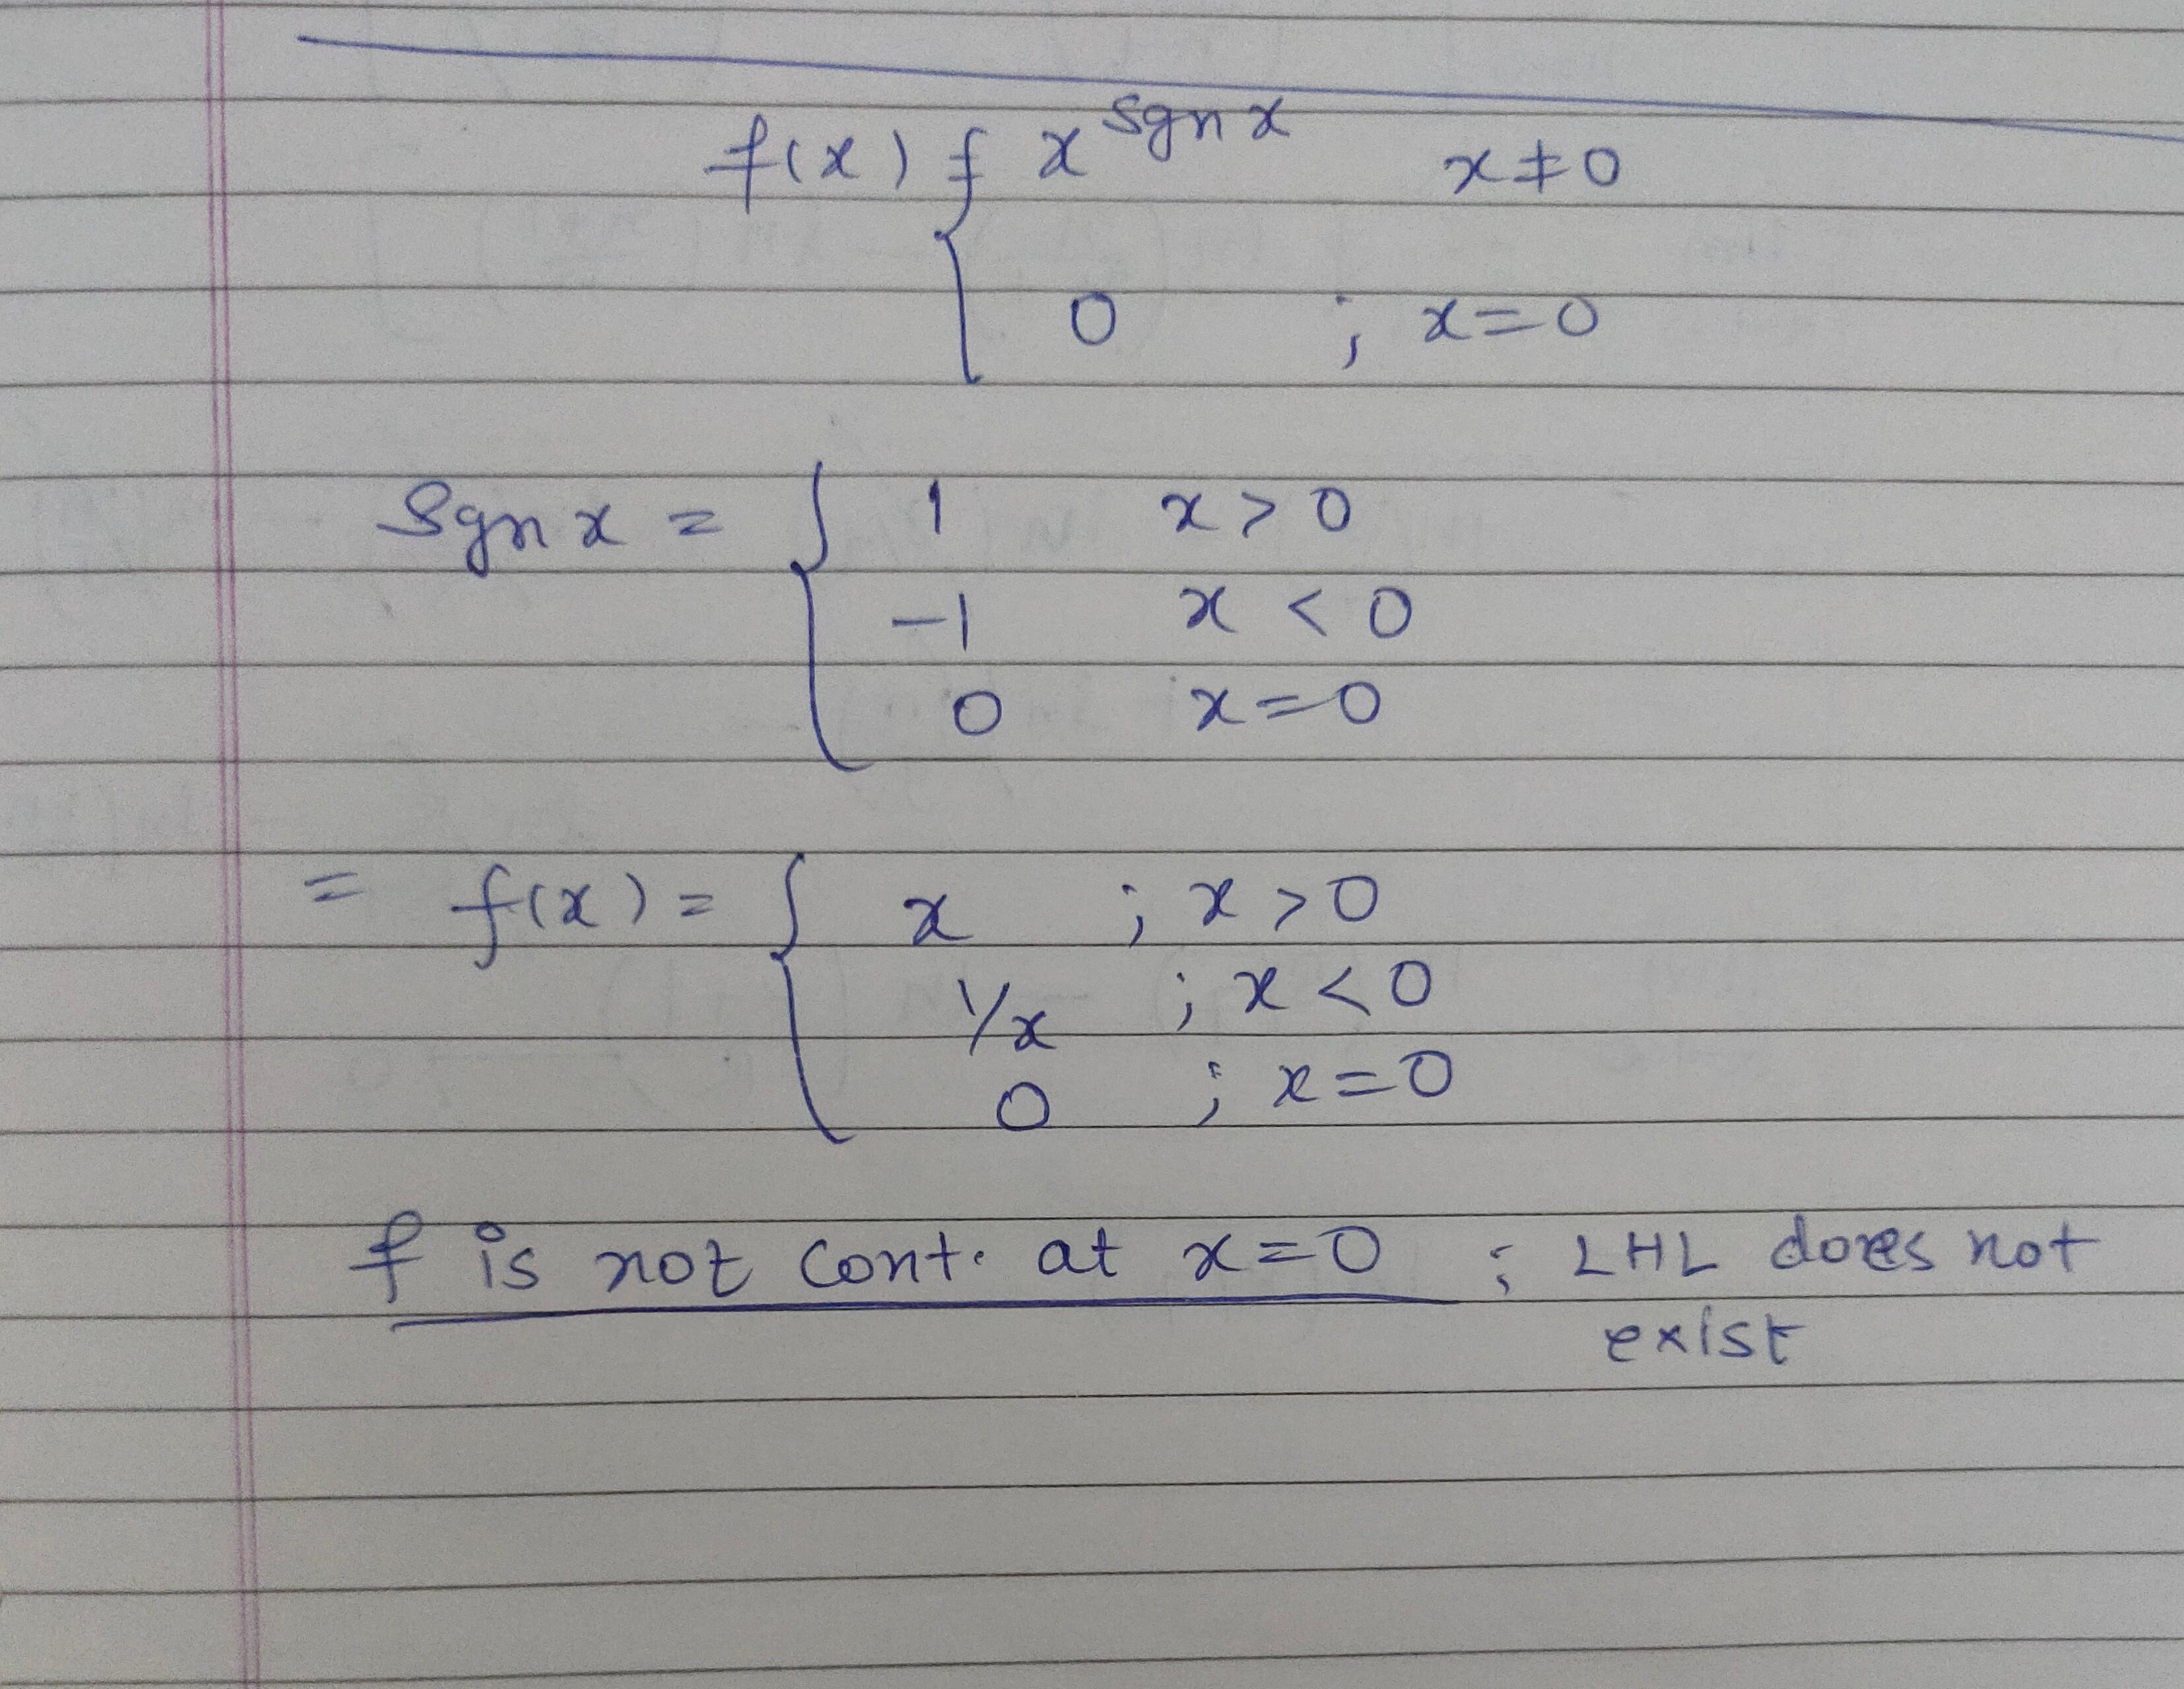 f(x) { x^sgn x x≠0
0 ; x=0
Sgn x = { 1 x>0
-1 x<0
0 x=0
= f(x) = { x ; x>0
1/x ; x<0
0 ; x=0
f is not cont. at x=0 ; LHL does not
exist